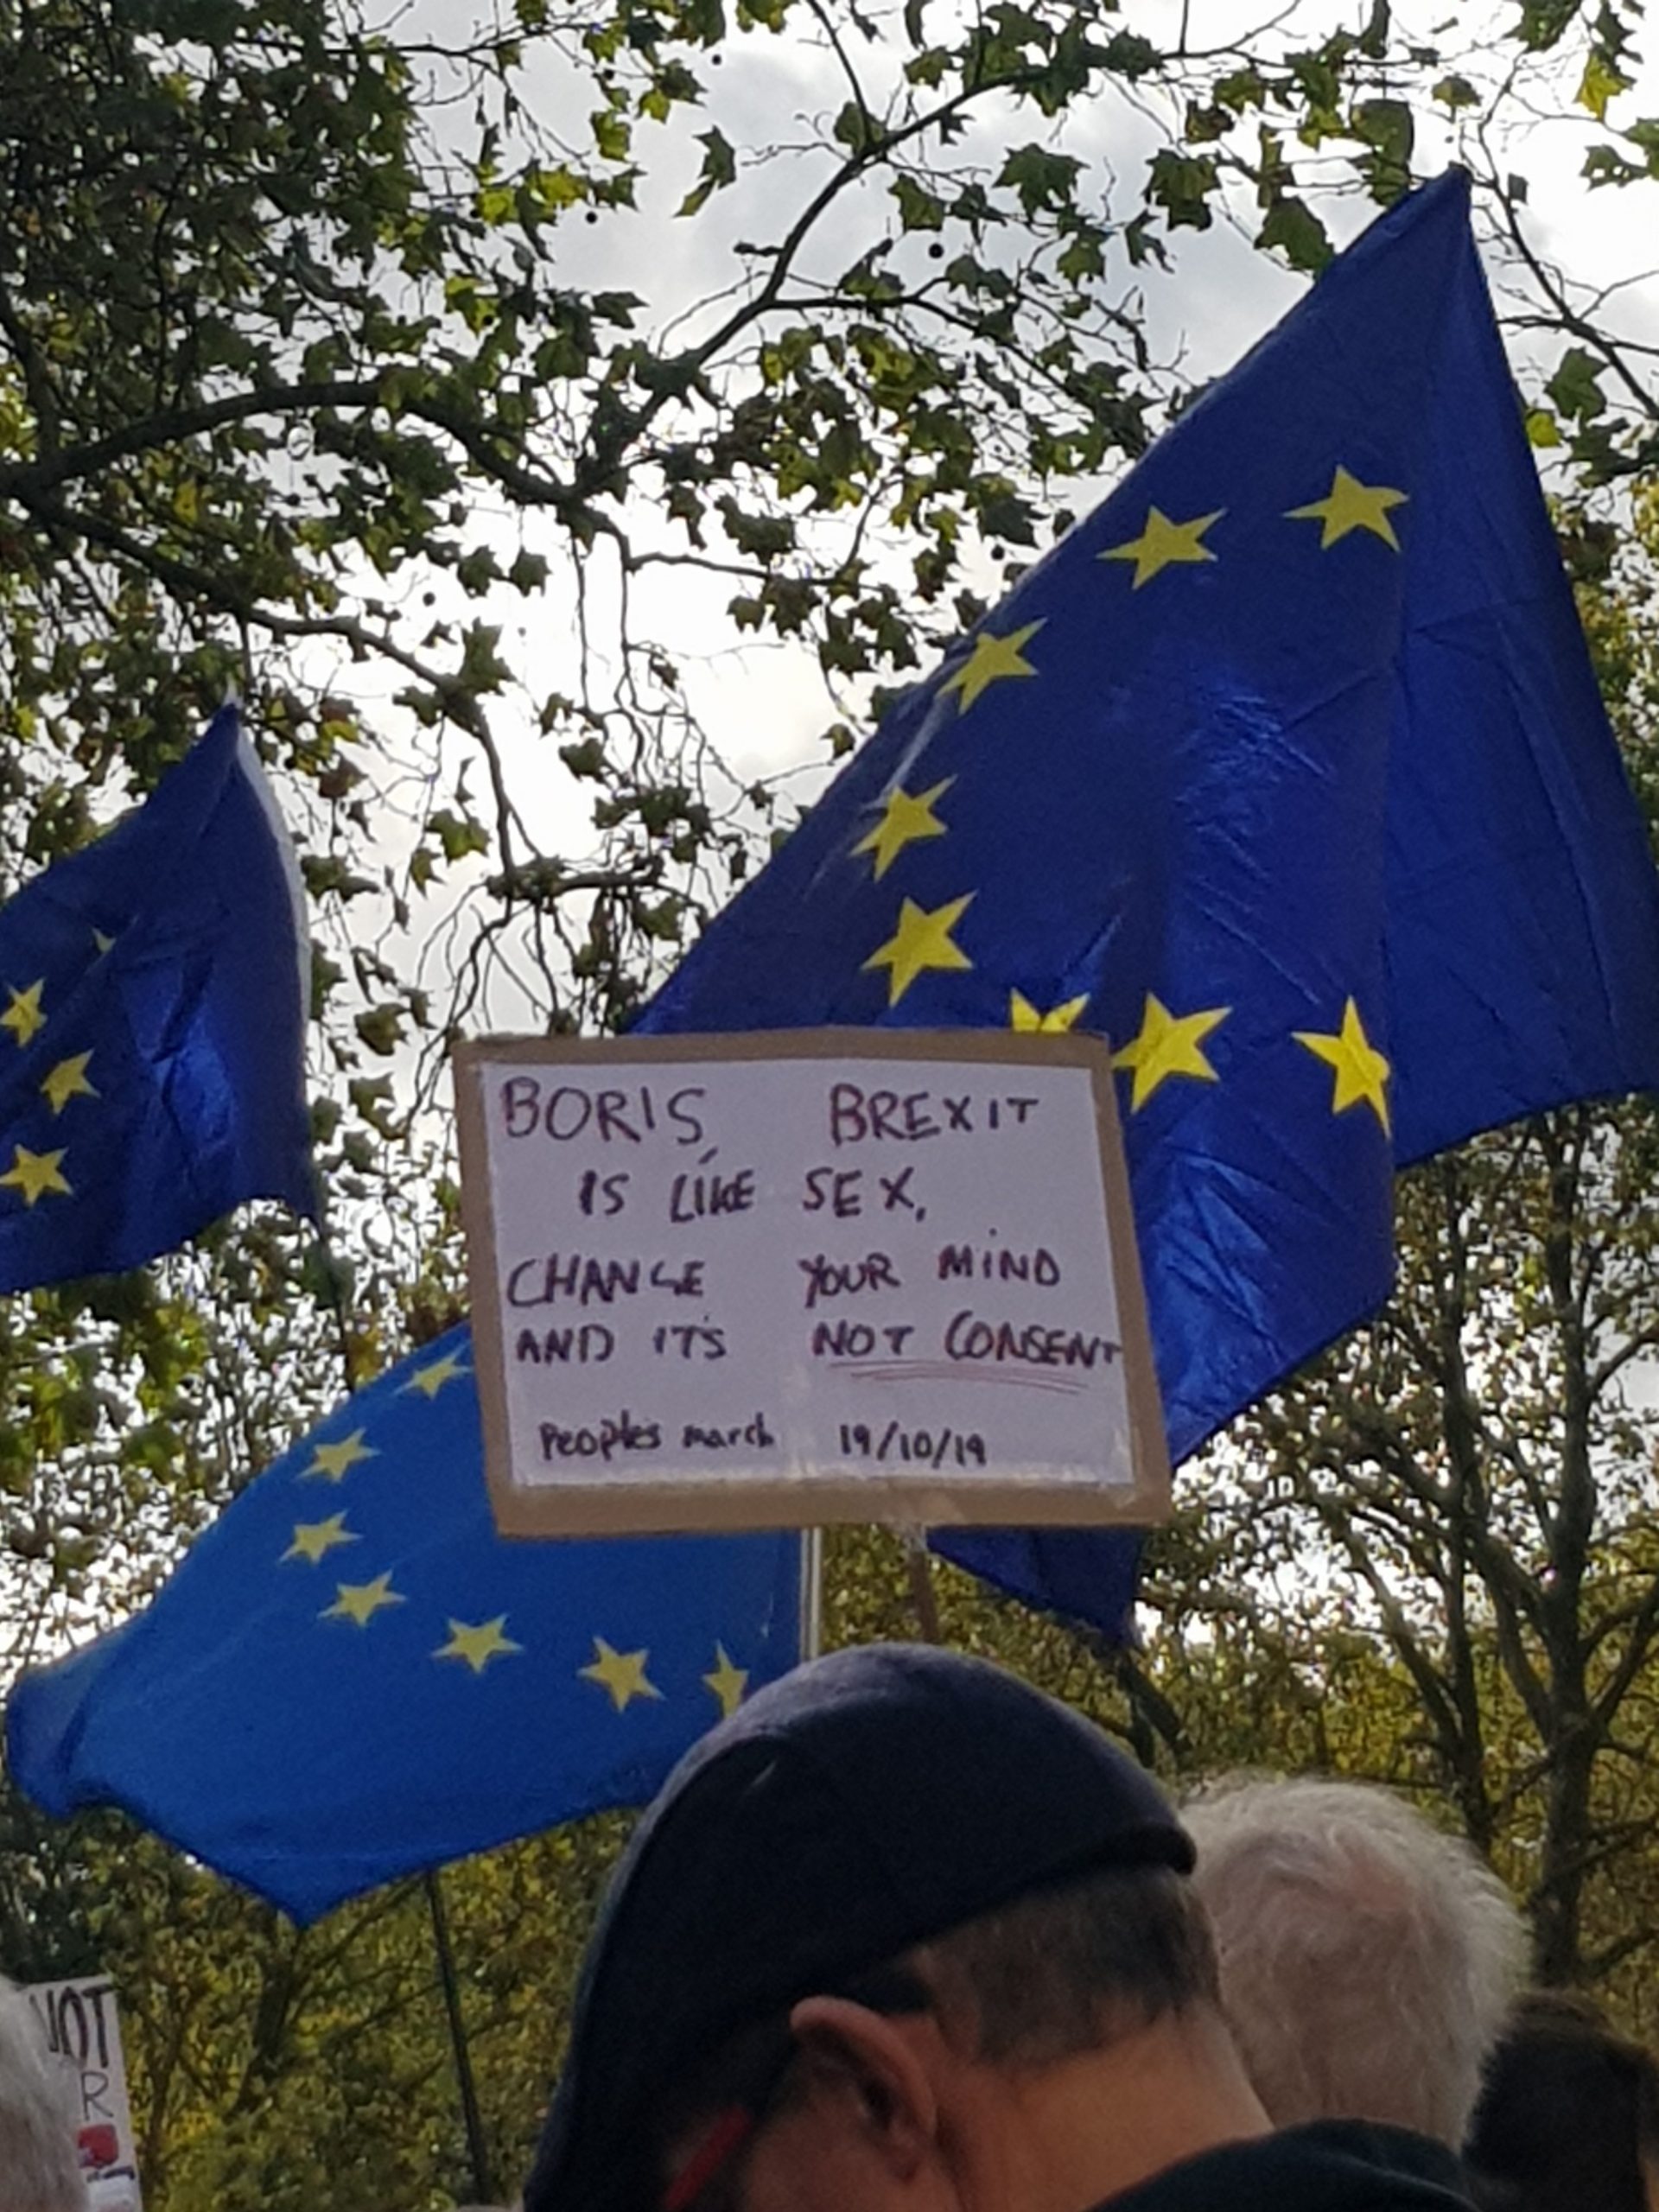 BORIS, BREXIT
IS LIKE SEX,
CHANGE YOUR MIND
AND IT'S NOT CONSENT
People's march 19/10/19
NOT
R